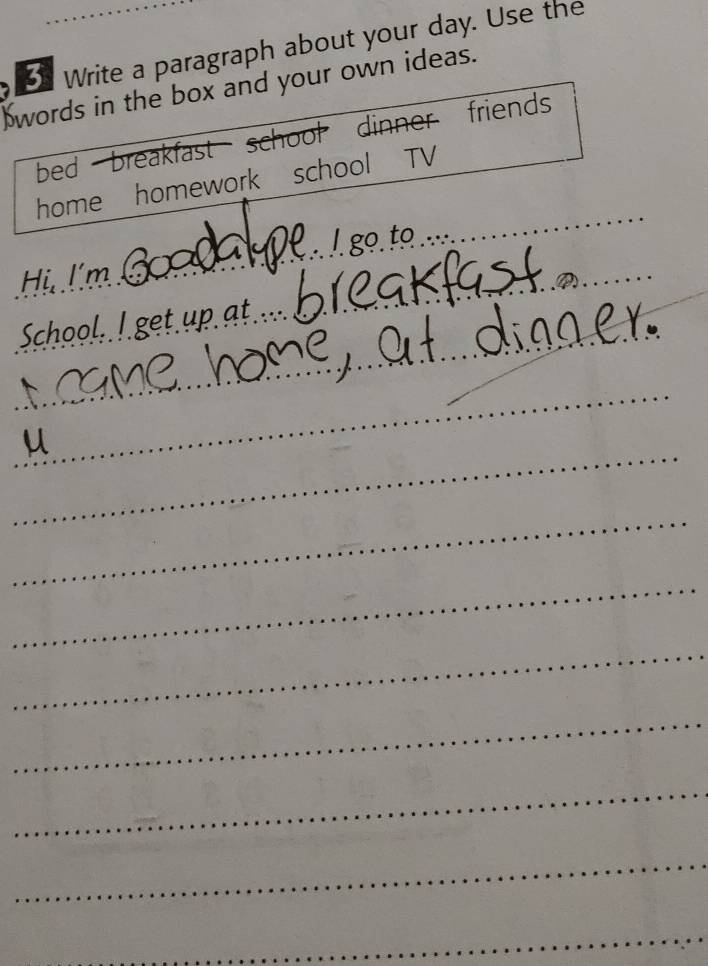 3 Write a paragraph about your day. Use the
words in the box and your own ideas.
bed breakfast school dinner friends
home homework school TV
Hi, I'm Goadalupe. I go to ...
School. I get up at ... breakfast.
I came home, at dinner.